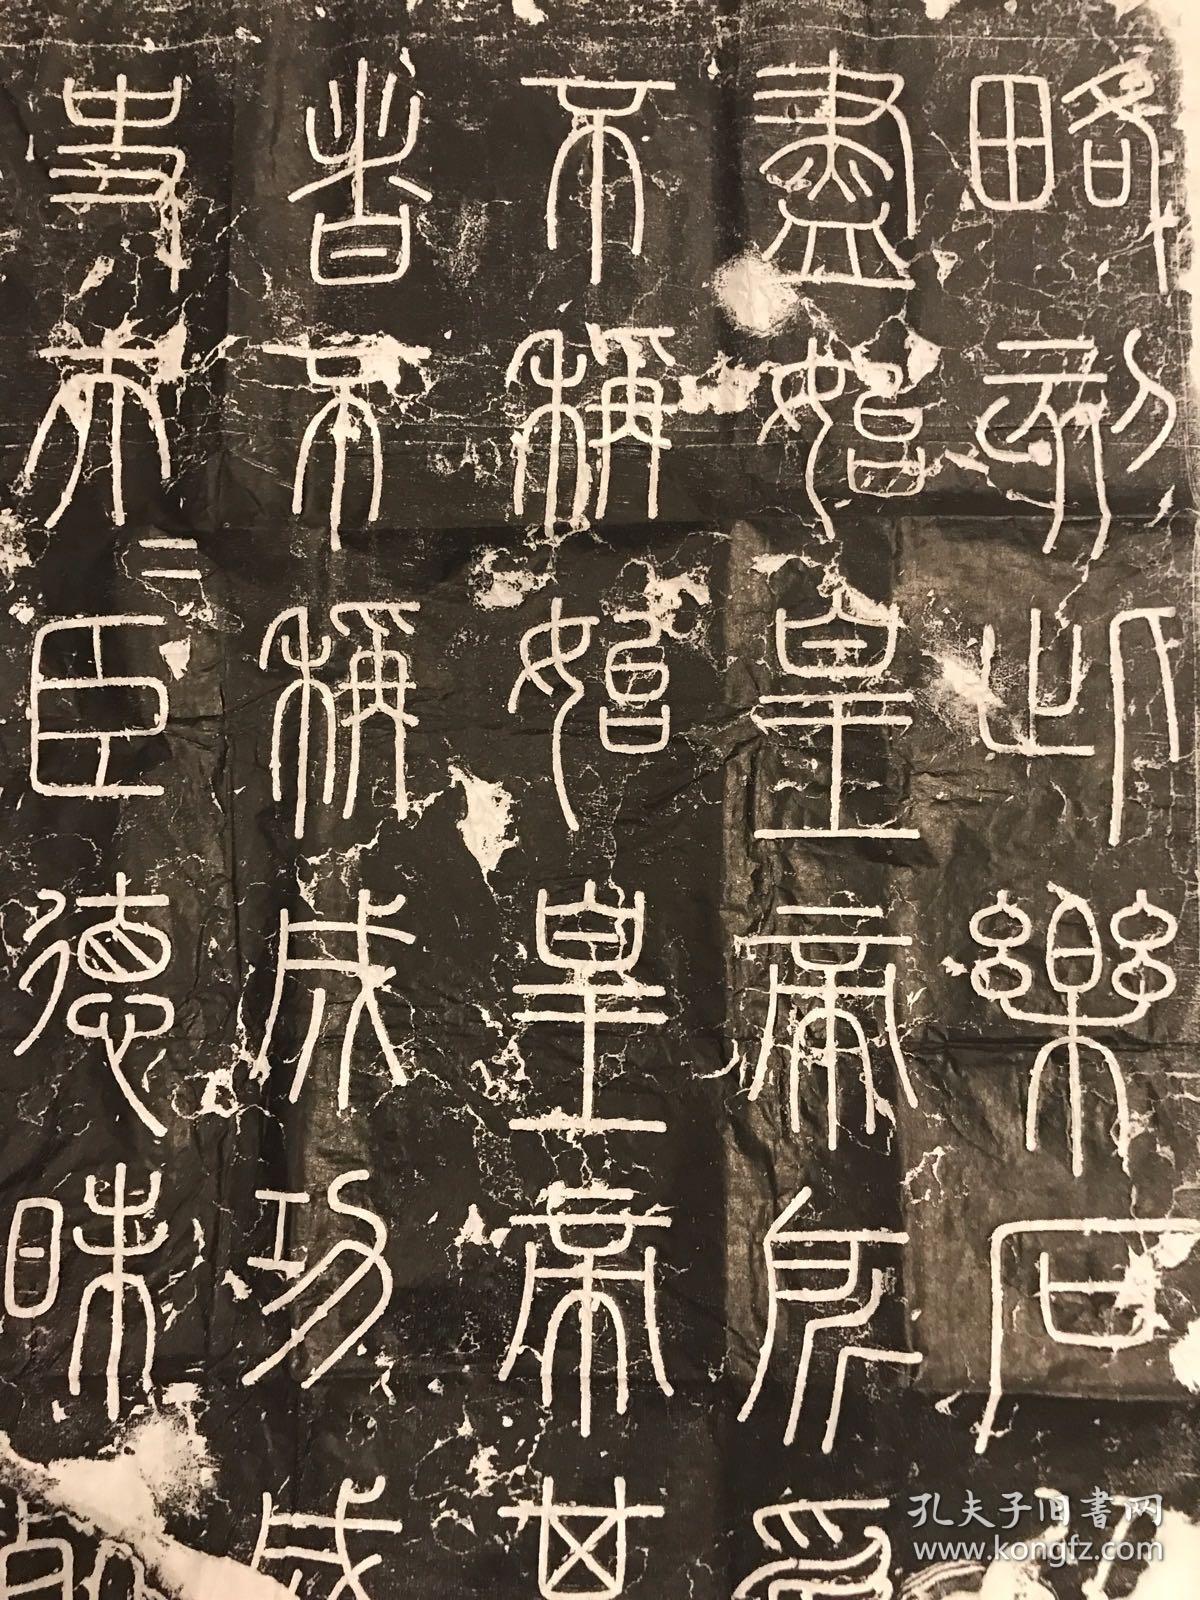 略刻此樂石
盡始皇帝所為
不稱始皇帝其
者不稱成功盛
史夫₌臣德昧
孔夫子旧書网
www.kongfz.com